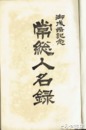 御成婚記念
常総人名録